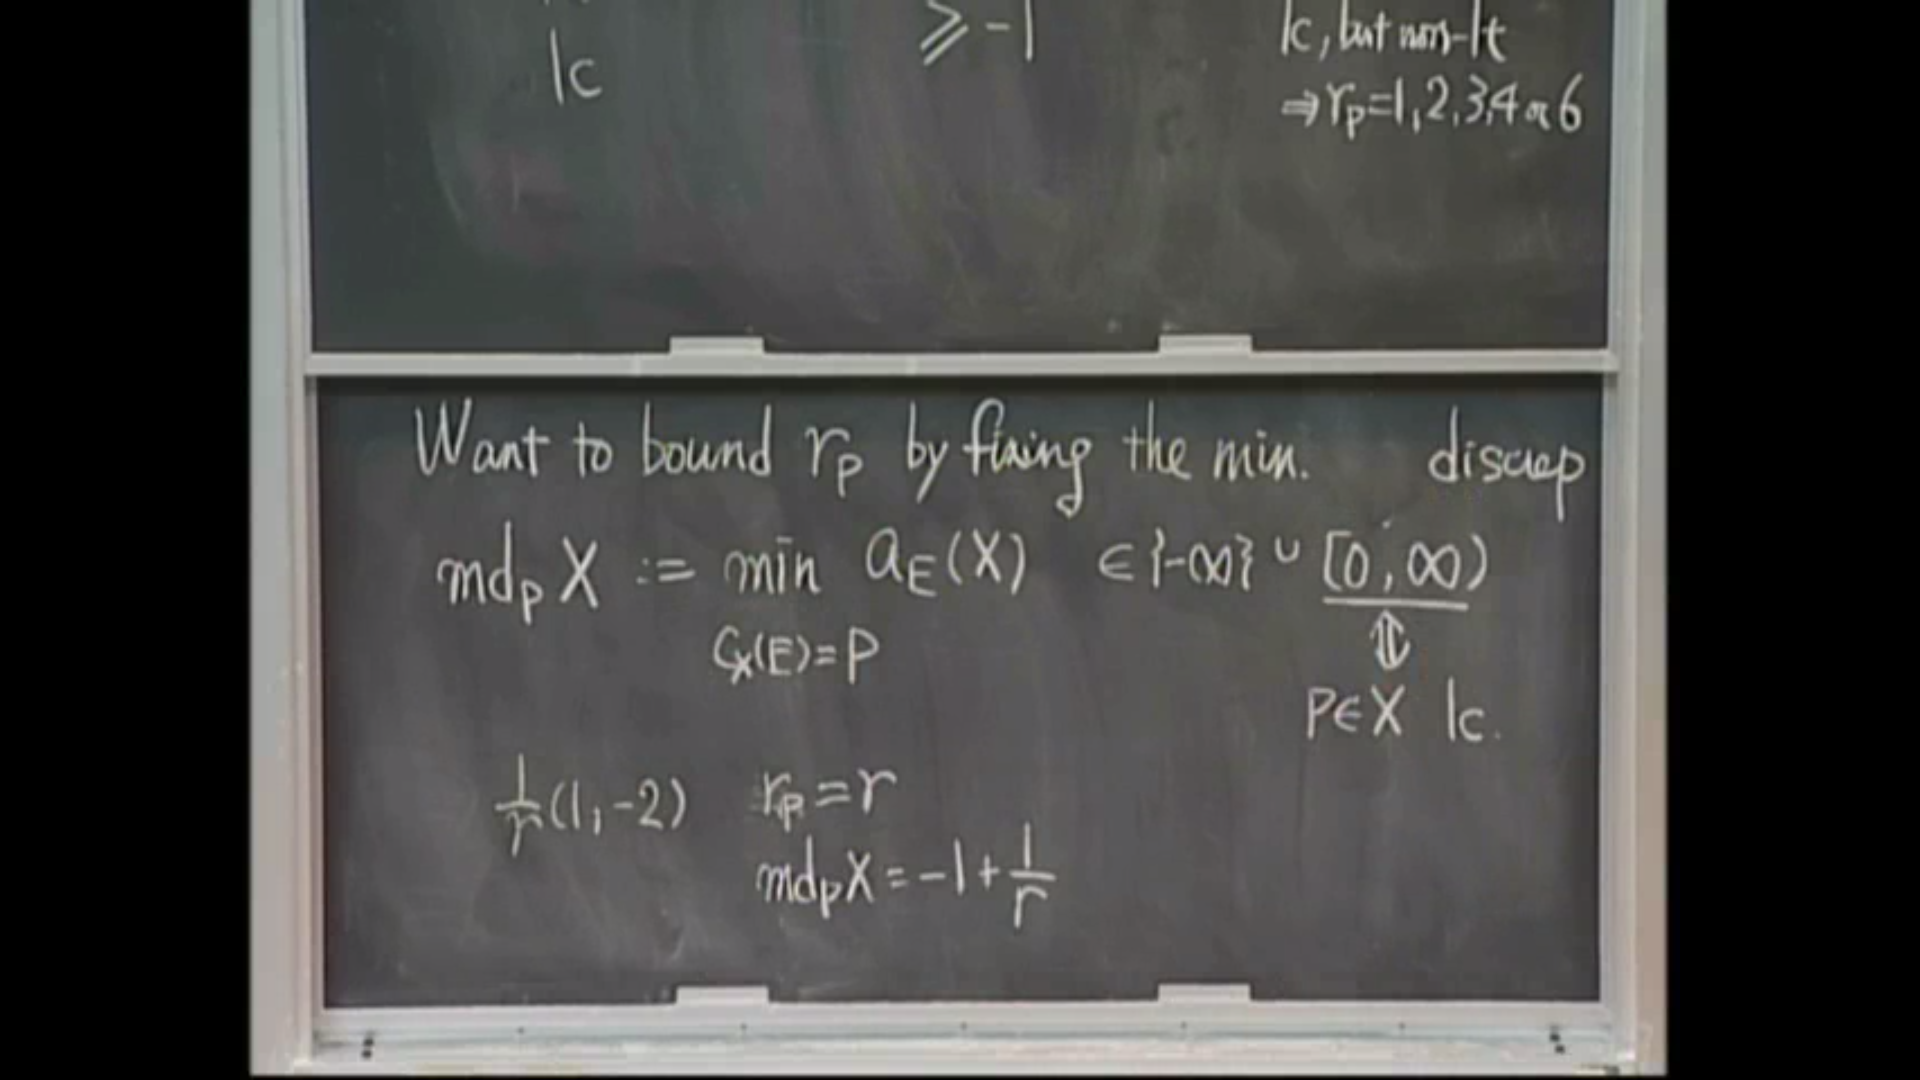 lc ≥ -1 lc, but non-lt
⇒ r_P = 1, 2, 3, 4 or 6
Want to bound r_P by fixing the min. discrep
md_P X := min a_E(X) ∈ {-∞} ∪ [0, ∞)
C_X(E) = P
⇕
P ∈ X lc.
1/r (1, -2) r_P = r
md_P X = -1 + 1/r